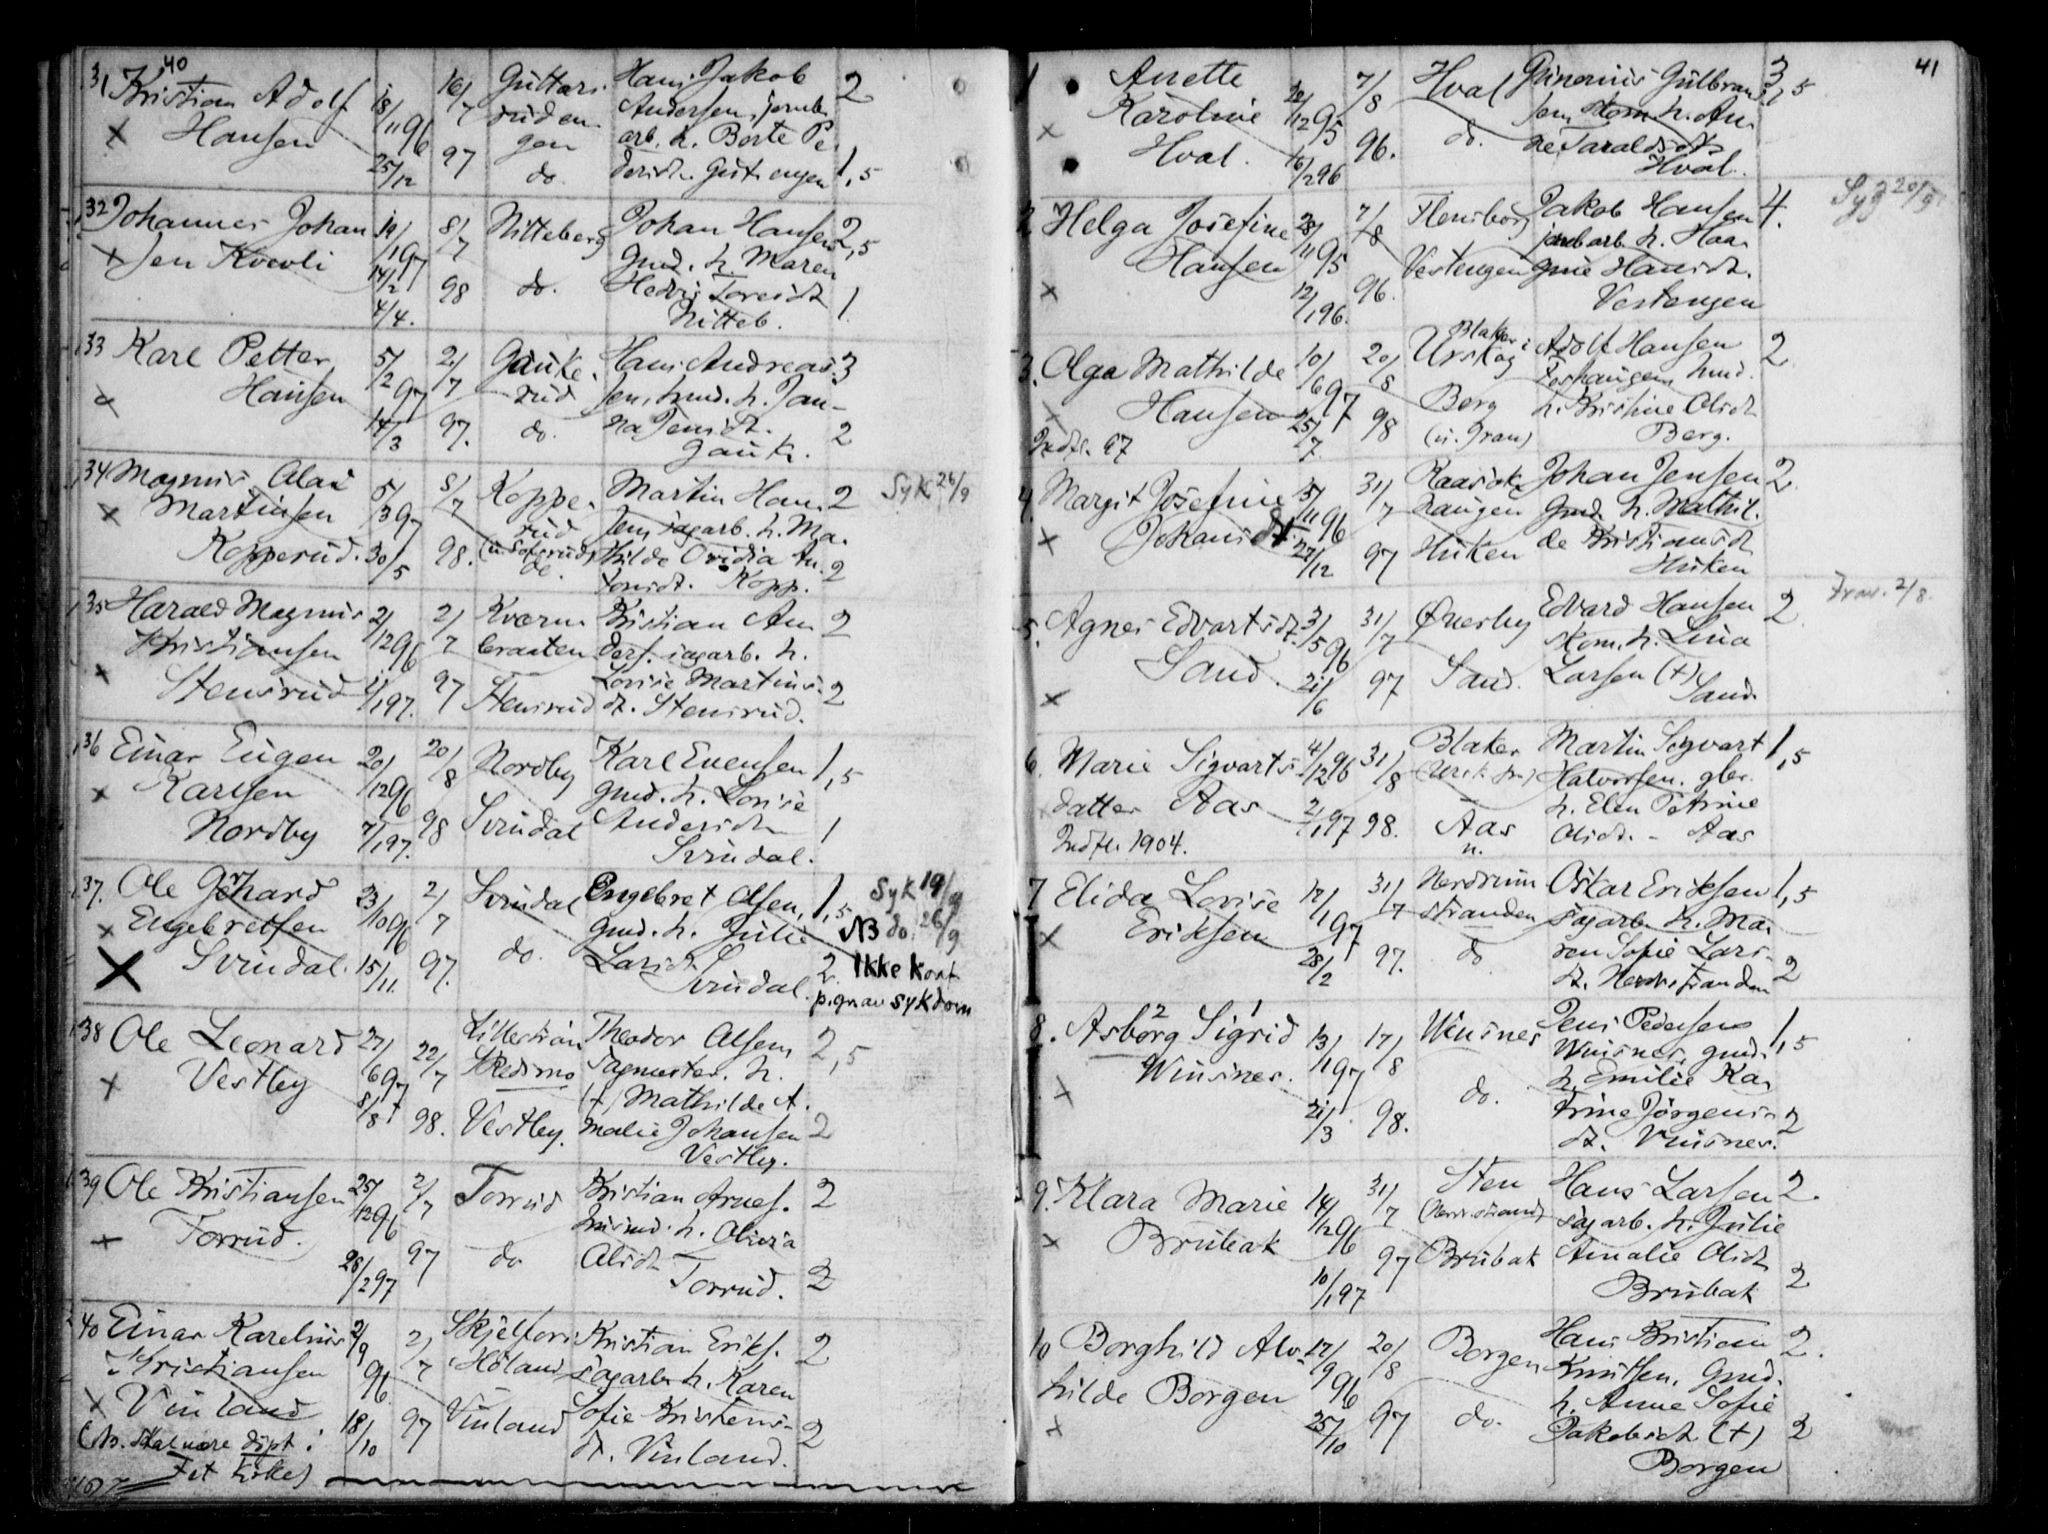 40
31 Kristian Adolf Hansen 18/11 96 25/12 16/7 97
Guttersrudengen do.
Hans Jakob
Andersen, jernb.
arb. h. Borte Pe
dersdt. Gut. engen
2
1,5
32 Johannes Johan
sen Kvevli
19/1 97 14/2 4/4. 8/7 98
Nitteberg do.
Johan Hansen
Gmd. h. Maren
Hedvig Toresdt
Nitteb.
2,5
1
33 Karl Petter
Hansen
5/2 97 14/3 2/7 97.
Gaukerud do.
Hans Andreas
sen, hmd. h. Jan-
na Jensdt.
Gauk.
3
2
34 Magnus Olai
Martinsen
Kopperud.
5/3 97 30/5 8/7 98.
Kopperud do.
Martin Han
sen, sagarb. h. Ma
thilde Ovidia An
tonsdt. Kopp.
2
2
Syk 24/9
35 Harald Magnus
Kristiansen
Stensrud
2/12 96 1/1 97. 2/7 97
Kværnbraaten
Stensrud
Kristian An
ders. sagarb. h.
Lovise Martins
dt. Stensrud.
2
2
36 Einar Eugen
Karlsen
Nordby
20/12 96 7/1 97. 20/8 98
Nordby
Svindal
Karl Evensen
gmd. h. Lovise
Andersdt
Svindal.
1,5
1
37. Ole Gerhard
Engebretsen
Svindal.
23/10 96 15/11. 2/7 97.
Svindal
do.
Engebret Olsen,
gmd. h. Julie
Larsdt
Svindal.
1,5
2
Syk 19/9
NB do. 26/9
Ikke kont
p.gr.av sykdom
38 Ole Leonard
Vestby
27/6 97 8/8 22/7 98.
Lillestrøm
Skedsmo
Vestby.
Theodor Olsen,
sagmester. h.
(+) Mathilde A.
malie Johansen
Vestby.
2,5
2
39 Ole Kristiansen
Torrud.
25/12 96 28/2 97 2/7 97
Torrud
do
Kristian Arnes.
h. Olivia
Olsdt
Torrud.
2
2
40 Einar Karelius
Kristiansen
Vinland
2/9 96 18/10 2/7 97
Skjelfors
Høland
Vinland
Kristian Eriks.
sagarb. h. Karen
Sofie Kristens
dt. Vinland.
2
2
(NB. skal være døpt i
Fet kirke)
41
1 Anette
Karoline
Hval.
12/12 95 16/2 96 7/8 96.
Hval
do.
Gunerius Gulbrand
sen, skom. h. An
ne Taraldsdt
Hval.
3,5
2. Helga Josefine
Hansen
28/11 95 12/1 96. 7/8 96.
Flensborg
Vestengen
Jakob Hansen
jernb.arb. h. Haa
gine Hansdt.
Vestengen
4.
Syg 20/9
3. Olga Mathilde
Hansen
Indfl. 97
10/6 97 25/7. 20/8 98
Blaker i
Urskog
Berg
(u. Gran)
Adolf Hansen
Foshaugen, hmd.
h. Kristine Olsdt
Berg.
2
4. Margit Josefine
Johansdt.
5/11 96 27/12 31/7 97
haugen
Huken
Johan Jensen
Gmd. h. Mathil
de Kristiansdt
Huken
2.
5. Agnes Edvartsdt.
Sand.
3/5 96 21/6 31/7 97
Øverby
Sand.
Edvard Hansen
skom. h. Lina
Larsen (+)
Sand
2.
Frav. 2/8.
6. Marie Sigvarts
datter Aas
Indfl. 1904.
4/12 96 2/1 97 31/8 98.
Blaker
Aas
n.
Martin Sigvart
Halvorsen. gbr.
h. Elen Petrine
Olsdt. - Aas
1,5
7 Elida Lovise
Eriksen
17/1 97 28/2 31/7 97.
Nerdrum
stranden
do
Oskar Eriksen
sagarb. h. Ma
ren Sofie Lars-
dt. Nerdrstranden
1,5
2
8. Asborg 2 Sigrid 1
Winsnes.
13/1 97 21/3 17/8 98.
Winsnes
do.
Jens Pedersen
Winsnes, gmd.
h. Emilie Ka
trine Jørgens
dt. Vinsnes.
1,5
2
9. Klara Marie
Brubak
14/12 96 10/1 97 31/7 97
Sten
(Nerdr.strand)
Brubak
Hans Larsen
sagarb. h. Julie
Amalie Olsdt
Brubak
2.
2
10 Borghild Alv
hilde Borgen
17/9 96 25/10 20/8 97
Borgen
do.
Hans Kristian
Knutsen, Gmd.
h. Anne Sofie
Jakobsdt. (+)
Borgen
2.
2